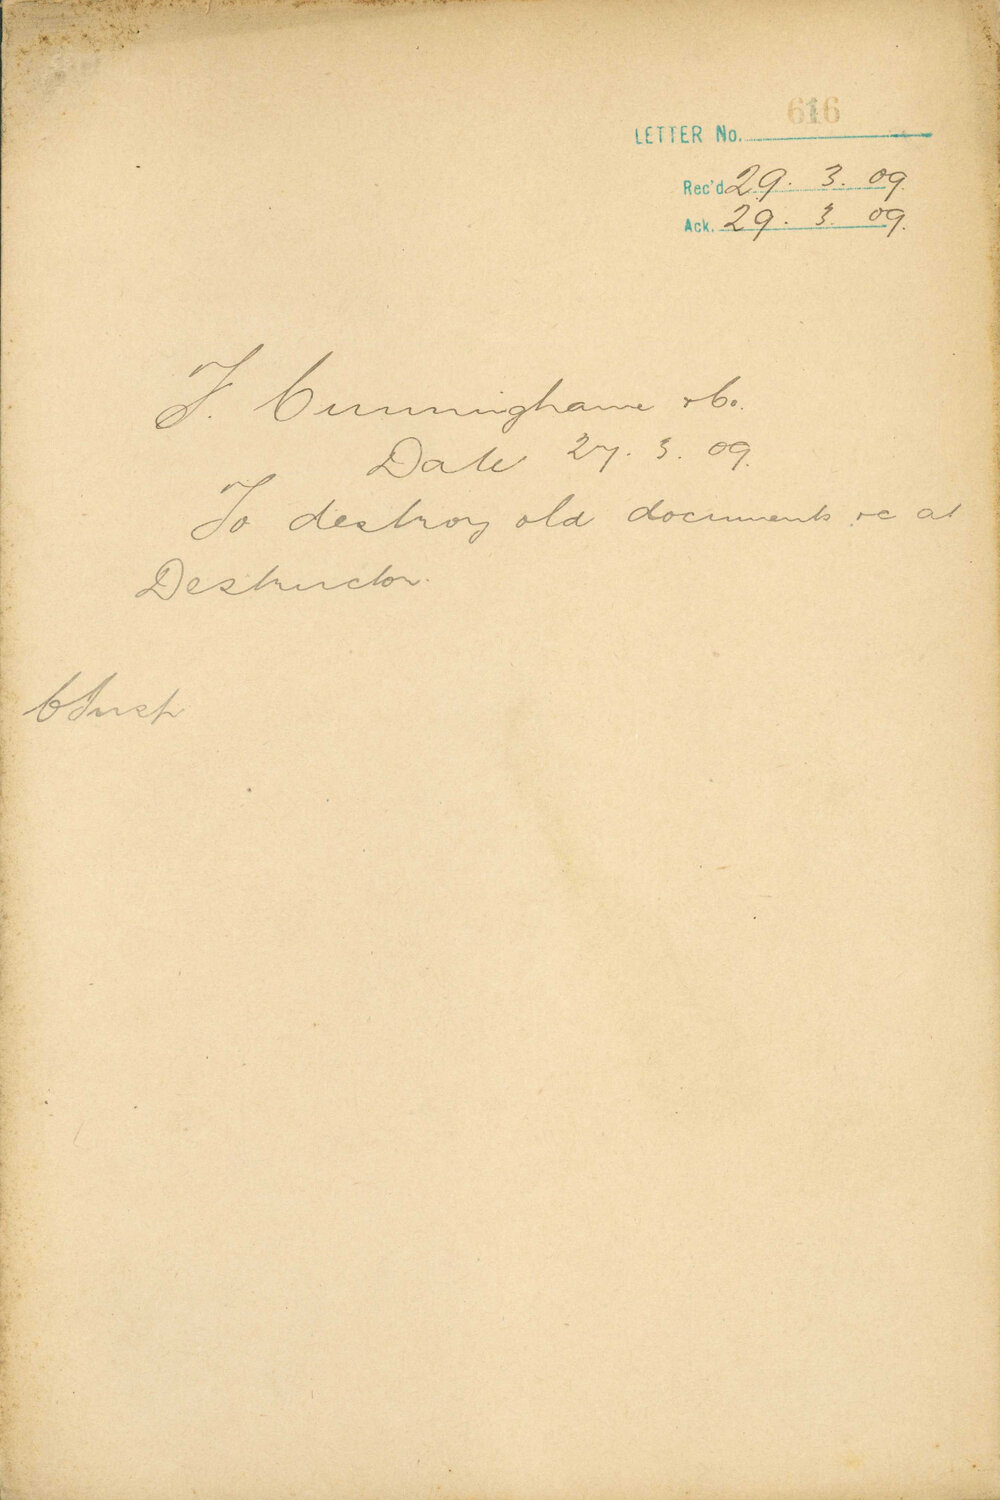 616
LETTER No.
Rec'd 29. 3. 09.
Ack. 29. 3. 09.
F. Cunninghame & Co.
Date 27. 3. 09.
To destroy old documents &c at
Destructor.
C Insp